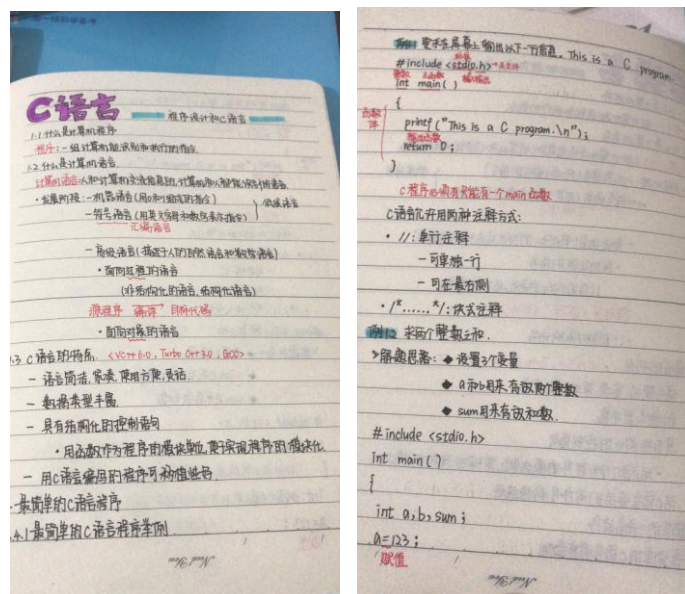 C语言
程序设计和C语言
1.1 什么是计算机程序
程序:一组计算机能识别和执行的指令.
1.2 什么是计算机语言
计算机语言:人和计算机交流信息的,计算机和人都能识别的语言
·发展阶段:—机器语言(用0和1组成的指令)
—符号语言(用英文字母和数字表示指令)
低级语言
汇编语言
—高级语言(接近于人的自然语言和数学语言)
·面向过程的语言
(非结构化的语言,结构化语言)
源程序 编译 目标代码
·面向对象的语言
1.3 C语言的特点 <VC++6.0, Turbo C++3.0, GCC>
— 语言简洁、紧凑,使用方便、灵活
— 数据类型丰富
— 具有结构化的控制语句
·用函数作为程序的模块单位,便于实现程序的模块化
— 用C语言编写的程序可移植性好
最简单的C语言程序
.4.1 最简单的C语言程序举例
例1.1 要求在屏幕上输出以下一行信息. This is a C program.
#include <stdio.h> → 头文件
整数 主函数 输入输出
int main( )
{
函数体
printf ("This is a C program.\n");
输出函数
return 0;
}
C程序必须有只能有一个main函数
C语言允许用两种注释方式:
· //:单行注释
— 可单独一行
— 可在最右侧
· /*......*/:块式注释
例1.2 求两个整数之和.
>解题思路: ◆ 设置3个变量
◆ a和b用来存放两个整数
◆ sum用来存放和数.
#include <stdio.h>
int main( )
{
int a,b,sum;
a=123;
赋值